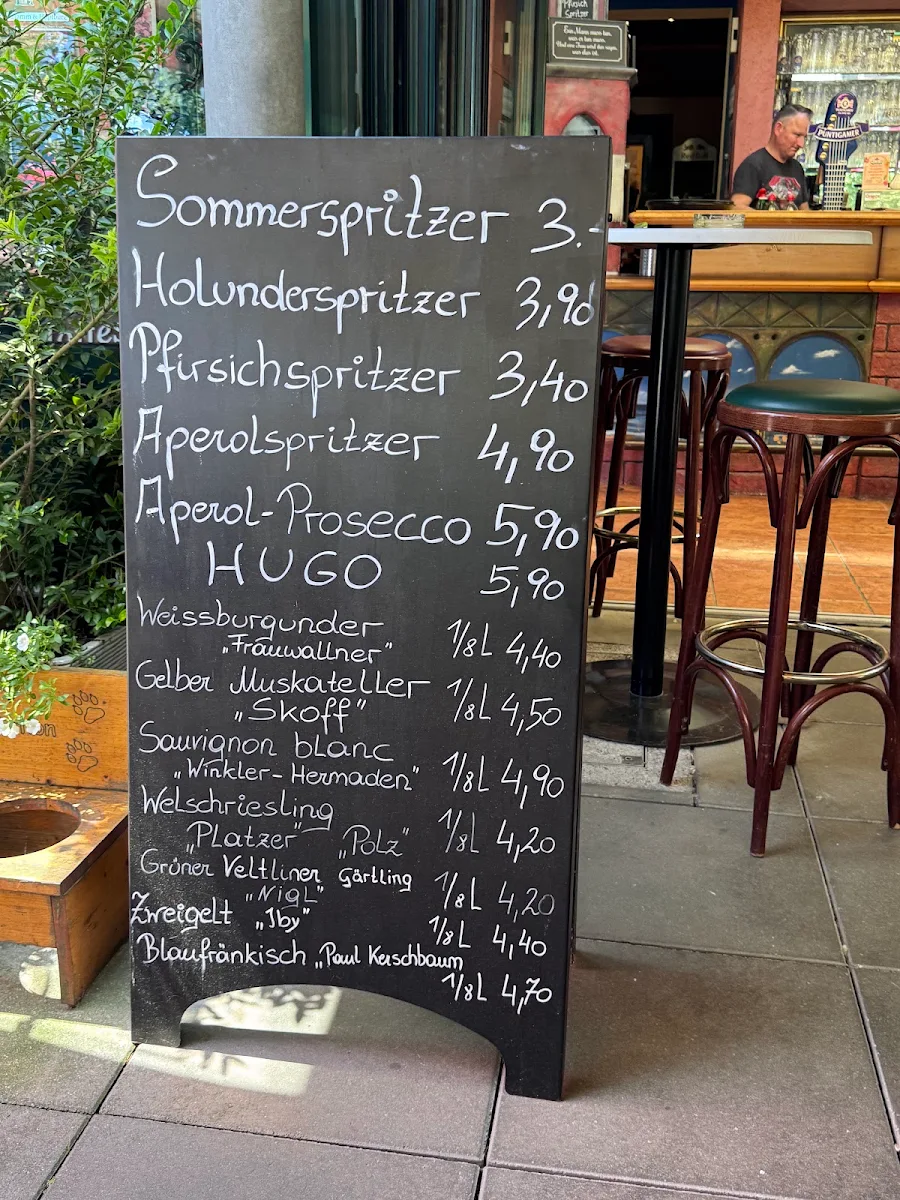 Pfirsich
Spritzer
PUNTIGAMER
Sommerspritzer 3.-
Holunderspritzer 3,90
Pfirsichspritzer 3,40
Aperolspritzer 4,90
Aperol-Prosecco 5,90
HUGO 5,90
Weissburgunder
„Frauwallner" 1/8L 4,40
Gelber Muskateller
„Skoff" 1/8L 4,50
Sauvignon blanc
„Winkler-Hermaden" 1/8L 4,90
Welschriesling
„Platzer" „Polz" 1/8L 4,20
Grüner Veltliner Gärtling
„Nigl" 1/8L 4,20
Zweigelt „Iby" 1/8L 4,40
Blaufränkisch „Paul Kerschbaum
1/8L 4,70